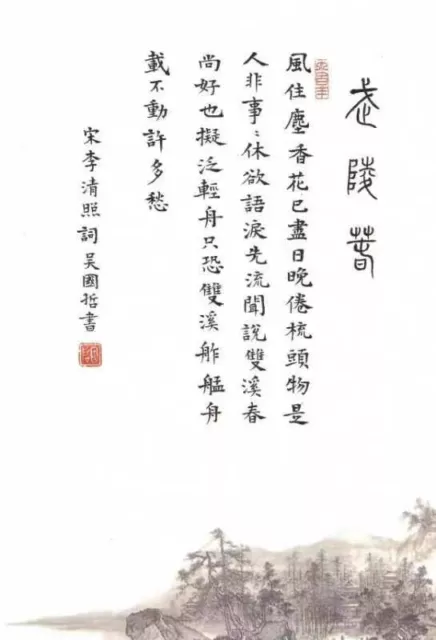 武陵春
風住塵香花已盡日晚倦梳頭物是
人非事〻休欲語淚先流聞說雙溪春
尚好也擬泛輕舟只恐雙溪舴艋舟
載不動許多愁
宋李清照詞吳國哲書